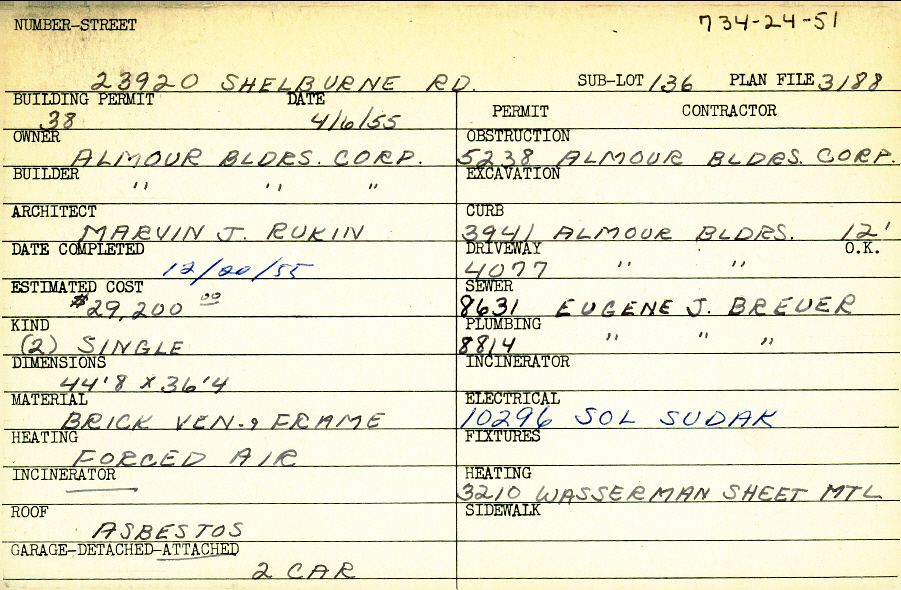 NUMBER-STREET 734-24-51
23920 SHELBURNE RD. SUB-LOT 136 PLAN FILE 3188
BUILDING PERMIT DATE
38 4/6/55
PERMIT CONTRACTOR
OWNER
ALMOUR BLDRS. CORP.
OBSTRUCTION
5238 ALMOUR BLDRS. CORP.
BUILDER
" " "
EXCAVATION
ARCHITECT
MARVIN J. RUKIN
CURB
3941 ALMOUR BLDRS. 12'
DATE COMPLETED
12/20/55
DRIVEWAY O.K.
4077 " "
ESTIMATED COST
$29,200 00
SEWER
8631 EUGENE J. BREUER
KIND
(2) SINGLE
PLUMBING
8814 " " "
DIMENSIONS
44'8 X 36'4
INCINERATOR
MATERIAL
BRICK VEN. & FRAME
ELECTRICAL
10296 SOL SUDAK
HEATING
FORCED AIR
FIXTURES
INCINERATOR
HEATING
3210 WASSERMAN SHEET MTL
ROOF
ASBESTOS
SIDEWALK
GARAGE-DETACHED-ATTACHED
2 CAR